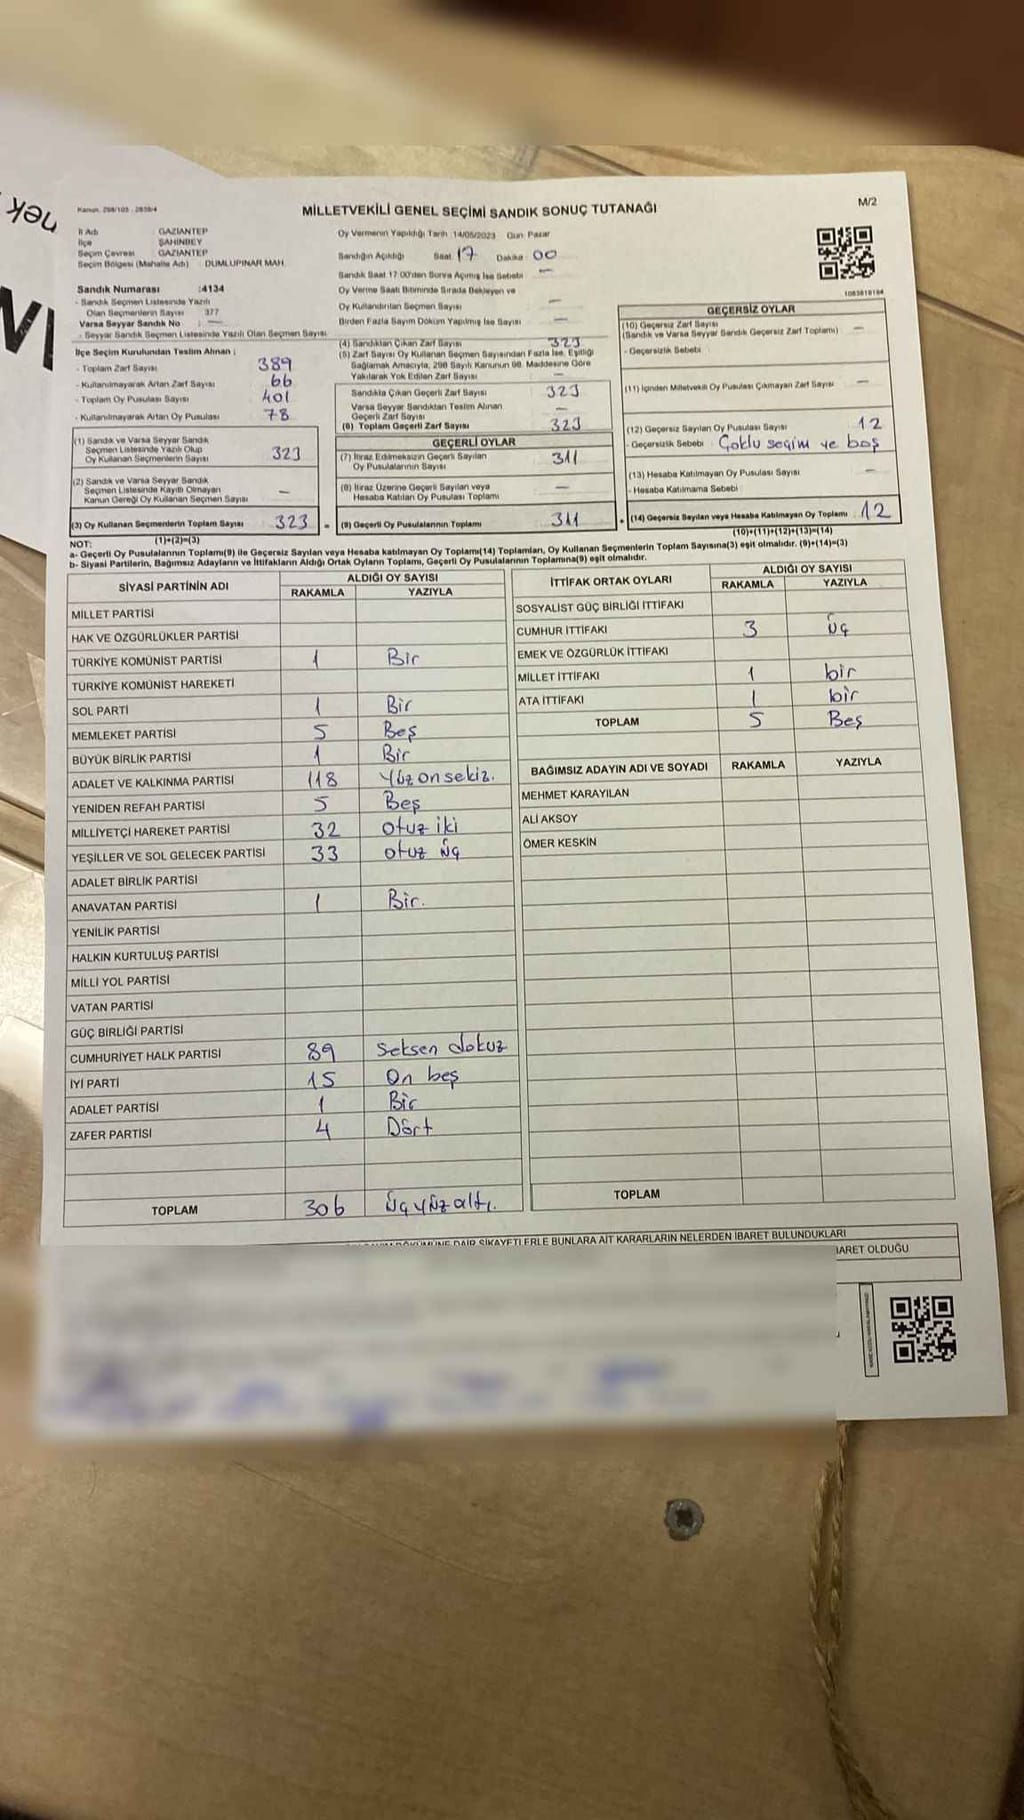 Kanun: 298/105 - 2839/4
MİLLETVEKİLİ GENEL SEÇİMİ SANDIK SONUÇ TUTANAĞI
M/2
İl Adı GAZİANTEP
İlçe ŞAHİNBEY
Seçim Çevresi GAZİANTEP
Seçim Bölgesi (Mahalle Adı) DUMLUPINAR MAH.
Sandık Numarası :4134
- Sandık Seçmen Listesinde Yazılı
Olan Seçmenlerin Sayısı 377
Varsa Seyyar Sandık No : —
- Seyyar Sandık Seçmen Listesinde Yazılı Olan Seçmen Sayısı
İlçe Seçim Kurulundan Teslim Alınan :
- Toplam Zarf Sayısı 389
- Kullanılmayarak Artan Zarf Sayısı 66
- Toplam Oy Pusulası Sayısı 401
- Kullanılmayarak Artan Oy Pusulası 78
(1) Sandık ve Varsa Seyyar Sandık
Seçmen Listesinde Yazılı Olup
Oy Kullanan Seçmenlerin Sayısı 323
(2) Sandık ve Varsa Seyyar Sandık
Seçmen Listesinde Kayıtlı Olmayan
Kanun Gereği Oy Kullanan Seçmen Sayısı —
(3) Oy Kullanan Seçmenlerin Toplam Sayısı 323 =
(1)+(2)=(3)
Oy Vermenin Yapıldığı Tarih 14/05/2023 Gün Pazar
Sandığın Açıldığı Saat 17 Dakika 00
Sandık Saat 17:00'den Sonra Açılmış İse Sebebi —
Oy Verme Saati Bitiminde Sırada Bekleyen ve
Oy Kullandırılan Seçmen Sayısı —
Birden Fazla Sayım Döküm Yapılmış İse Sayısı —
(4) Sandıktan Çıkan Zarf Sayısı 323
(5) Zarf Sayısı Oy Kullanan Seçmen Sayısından Fazla İse, Eşitliği
Sağlamak Amacıyla, 298 Sayılı Kanunun 98. Maddesine Göre
Yakılarak Yok Edilen Zarf Sayısı —
Sandıkta Çıkan Geçerli Zarf Sayısı 323
Varsa Seyyar Sandıktan Teslim Alınan
Geçerli Zarf Sayısı —
(6) Toplam Geçerli Zarf Sayısı 323
GEÇERLİ OYLAR
(7) İtiraz Edilmeksizin Geçerli Sayılan
Oy Pusulalarının Sayısı 311
(8) İtiraz Üzerine Geçerli Sayılan veya
Hesaba Katılan Oy Pusulası Toplamı —
(9) Geçerli Oy Pusulalarının Toplamı 311 +
1083818184
GEÇERSİZ OYLAR
(10) Geçersiz Zarf Sayısı
(Sandık ve Varsa Seyyar Sandık Geçersiz Zarf Toplamı) —
- Geçersizlik Sebebi
(11) İçinden Milletvekili Oy Pusulası Çıkmayan Zarf Sayısı —
(12) Geçersiz Sayılan Oy Pusulası Sayısı 12
- Geçersizlik Sebebi Çoklu seçim ve boş
(13) Hesaba Katılmayan Oy Pusulası Sayısı —
- Hesaba Katılmama Sebebi
(14) Geçersiz Sayılan veya Hesaba Katılmayan Oy Toplamı 12
(10)+(11)+(12)+(13)=(14)
NOT:
a- Geçerli Oy Pusulalarının Toplamı(9) ile Geçersiz Sayılan veya Hesaba katılmayan Oy Toplamı(14) Toplamları, Oy Kullanan Seçmenlerin Toplam Sayısına(3) eşit olmalıdır. (9)+(14)=(3)
b- Siyasi Partilerin, Bağımsız Adayların ve İttifakların Aldığı Ortak Oyların Toplamı, Geçerli Oy Pusulalarının Toplamına(9) eşit olmalıdır.
SİYASİ PARTİNİN ADI ALDIĞI OY SAYISI
RAKAMLA YAZIYLA
MİLLET PARTİSİ
HAK VE ÖZGÜRLÜKLER PARTİSİ
TÜRKİYE KOMÜNİST PARTİSİ 1 Bir
TÜRKİYE KOMÜNİST HAREKETİ
SOL PARTİ 1 Bir
MEMLEKET PARTİSİ 5 Beş
BÜYÜK BİRLİK PARTİSİ 1 Bir
ADALET VE KALKINMA PARTİSİ 118 Yüz on sekiz.
YENİDEN REFAH PARTİSİ 5 Beş
MİLLİYETÇİ HAREKET PARTİSİ 32 otuz iki
YEŞİLLER VE SOL GELECEK PARTİSİ 33 otuz üç
ADALET BİRLİK PARTİSİ
ANAVATAN PARTİSİ 1 Bir.
YENİLİK PARTİSİ
HALKIN KURTULUŞ PARTİSİ
MİLLİ YOL PARTİSİ
VATAN PARTİSİ
GÜÇ BİRLİĞİ PARTİSİ
CUMHURİYET HALK PARTİSİ 89 Seksen dokuz
İYİ PARTİ 15 On beş
ADALET PARTİSİ 1 Bir
ZAFER PARTİSİ 4 Dört
TOPLAM 306 Üç yüz altı.
İTTİFAK ORTAK OYLARI ALDIĞI OY SAYISI
RAKAMLA YAZIYLA
SOSYALİST GÜÇ BİRLİĞİ İTTİFAKI
CUMHUR İTTİFAKI 3 üç
EMEK VE ÖZGÜRLÜK İTTİFAKI
MİLLET İTTİFAKI 1 bir
ATA İTTİFAKI 1 bir
TOPLAM 5 Beş
BAĞIMSIZ ADAYIN ADI VE SOYADI RAKAMLA YAZIYLA
MEHMET KARAYILAN
ALİ AKSOY
ÖMER KESKİN
TOPLAM
DÖKÜMÜNE DAİR ŞİKAYETLERLE BUNLARA AİT KARARLARIN NELERDEN İBARET BULUNDUKLARI
OLDUĞU